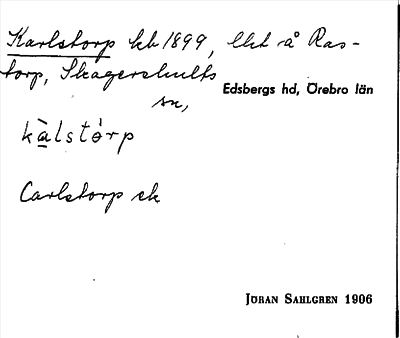 Karlstorp kb 1899, lht å Ras-
torp, Skagershults
sn,
Edsbergs hd, Örebro län
kàlstórp
Carlstorp ek
JÖRAN SAHLGREN 1906